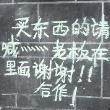 买东西的请
喊 老板在
里面谢谢!!
合作!